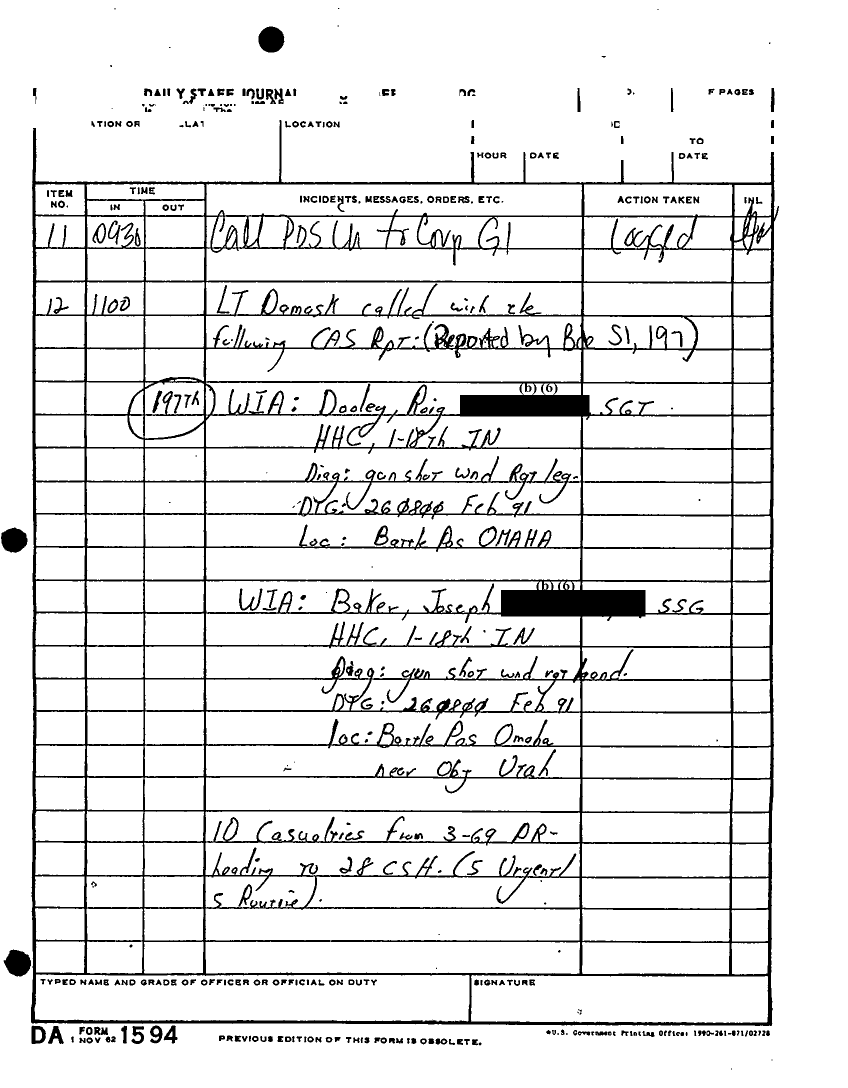 DAILY STAFF JOURNAL
F PAGES
LOCATION
TO
HOUR DATE DATE
ITEM NO. TIME IN OUT INCIDENTS, MESSAGES, ORDERS, ETC. ACTION TAKEN INL
11 0930 Call PDS Un to Corp G1 Logged
12 1100 LT Domask called with the
following CAS Rpt: (Reported by Bde S1, 197)
(b)(6)
197th WIA: Dooley, Roig , SGT
HHC, 1-18th IN
Diag: gun shot wnd Rgt leg-
DTG: 260800 Feb 91
Loc: Battle Pos OMAHA
(b)(6)
WIA: Baker, Joseph SSG
HHC, 1-18th IN
Diag: gun shot wnd rgt hand.
DTG: 260800 Feb 91
loc: Battle Pos Omaha
near Obj Utah
10 Casualties from 3-69 AR-
heading to 28 CSH. (5 Urgent/
5 Routine).
TYPED NAME AND GRADE OF OFFICER OR OFFICIAL ON DUTY SIGNATURE
DA FORM 1 NOV 62 1594 PREVIOUS EDITION OF THIS FORM IS OBSOLETE. *U.S. Government Printing Office: 1990-261-871/02728